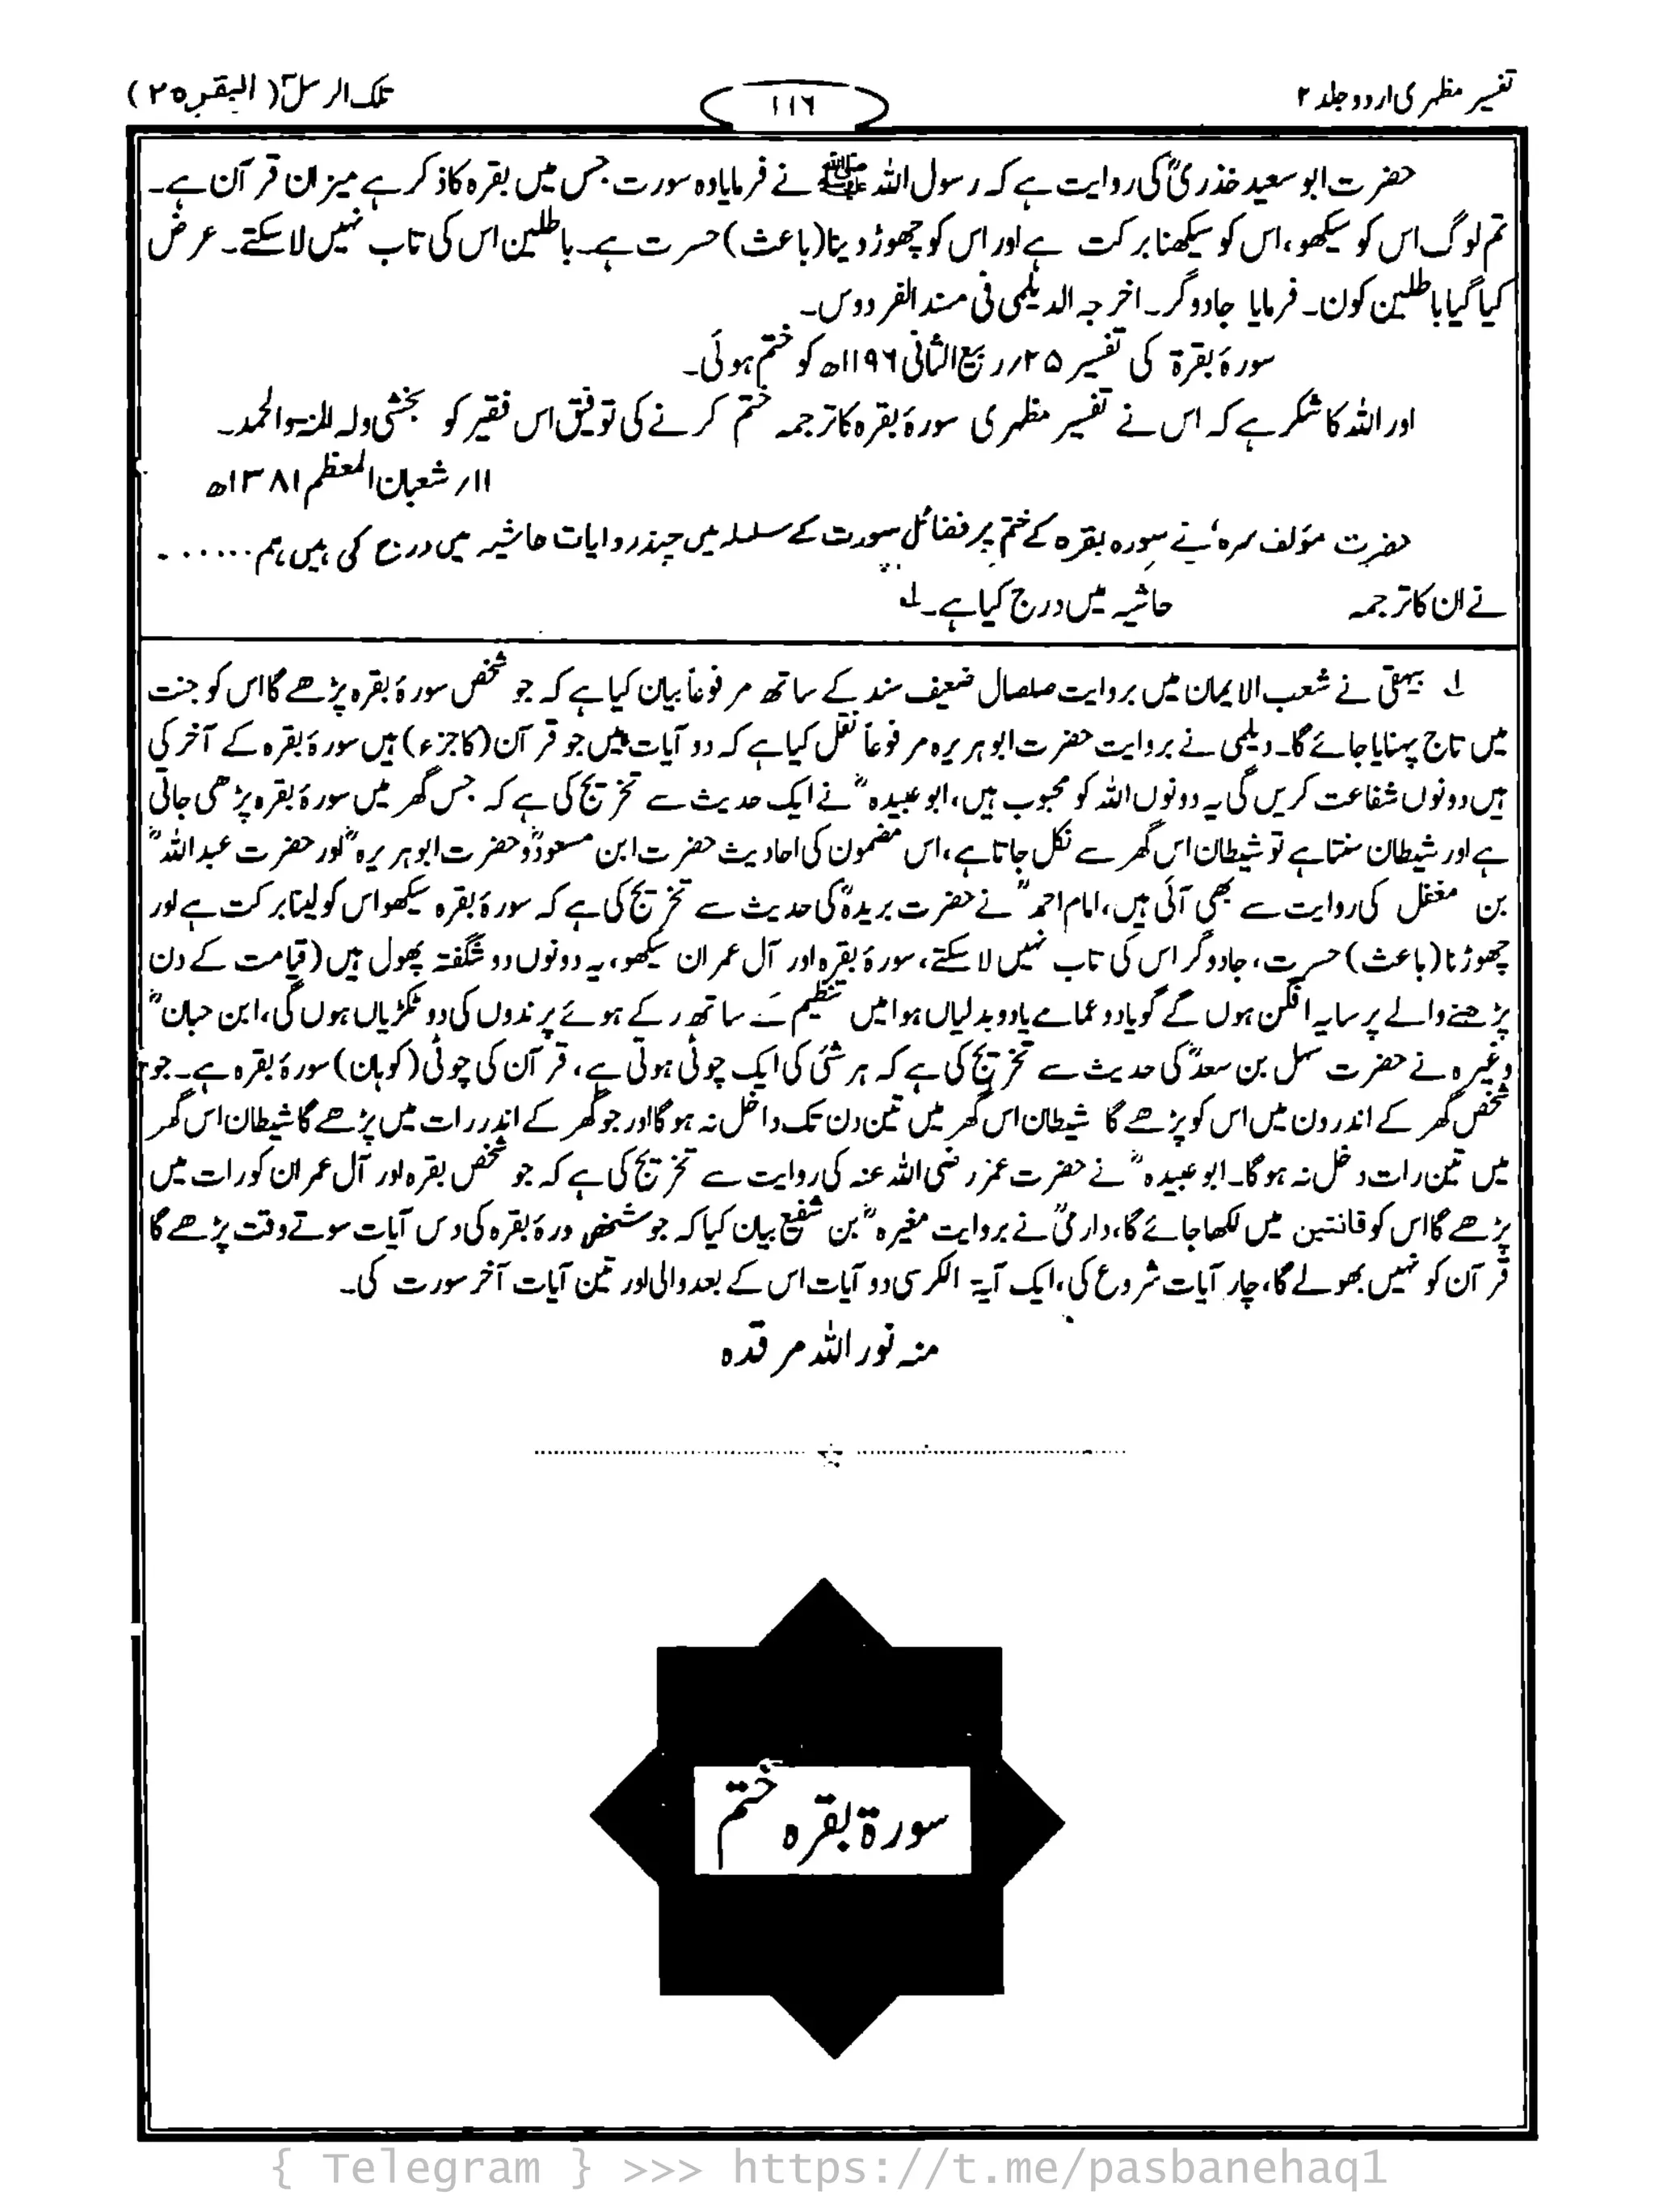 تفسیر مظہری اردو جلد ۲
۱۱۶
تلک الرسل (البقرہ ۲)
حضرت ابو سعید خذریؓ کی روایت ہے کہ رسول اللہ ﷺ نے فرمایا وہ سورت جس میں بقرہ کا ذکر ہے میزان قر آن ہے۔
تم لوگ اس کو سیکھو، اس کو سیکھنا برکت ہے اور اس کو چھوڑ دینا (باعث) حسرت ہے۔ باطلین اس کی تاب نہیں لا سکتے۔ عرض
کیا گیا باطلین کون۔ فرمایا جادوگر۔ اخرجہ الدیلمی فی مسند الفردوس۔
سورۂ بقرۃ کی تفسیر ۲۵/ ربیع الثانی ۱۱۹۶ھ کو ختم ہوئی۔
اور اللہ کا شکر ہے کہ اس نے تفسیر مظہری سورۂ بقرہ کا ترجمہ ختم کرنے کی توفیق اس فقیر کو بخشی ولہ المنۃ والحمد۔
۱۱/ شعبان المعظم ۱۳۸۱ھ
حضرت مؤلف سرہ' نے سورہ بقرہ کے ختم پر فضائل سورت کے سلسلہ میں چند روایات حاشیہ میں درج کی ہیں ہم ......
نے ان کا ترجمہ حاشیہ میں درج کیا ہے۔ ۱؎
۱؎ بیہقی نے شعب الایمان میں بروایت صلصال ضعیف سند کے ساتھ مرفوعاً بیان کیا ہے کہ جو شخص سورۂ بقرہ پڑھے گا اس کو جنت
میں تاج پہنایا جائے گا۔ دیلمی نے بروایت حضرت ابو ہریرہ مرفوعاً نقل کیا ہے کہ دو آیات ہیں جو قر آن (کا جزء) ہیں سورۂ بقرہ کے آخر کی
ہیں دونوں شفاعت کریں گی یہ دونوں اللہ کو محبوب ہیں، ابو عبیدہؓ نے ایک حدیث سے تخریج کی ہے کہ جس گھر میں سورۂ بقرہ پڑھی جاتی
ہے اور شیطان سنتا ہے تو شیطان اس گھر سے نکل جاتا ہے، اس مضمون کی احادیث حضرت ابن مسعودؓ و حضرت ابو ہریرہؓ اور حضرت عبد اللہؓ
بن مغفل کی روایت سے بھی آئی ہیں، امام احمدؒ نے حضرت بریدہؓ کی حدیث سے تخریج کی ہے کہ سورۂ بقرہ سیکھو اس کو لینا برکت ہے اور
چھوڑنا (باعث) حسرت، جادوگر اس کی تاب نہیں لا سکتے، سورۂ بقرہ اور آل عمران سیکھو، یہ دونوں دو شگفتہ پھول ہیں (قیامت کے دن
پڑھنے والے پر سایہ افگن ہوں گے گویا دو عمامے یا دو بدلیاں ہوا میں تنظیم کے ساتھ رکے ہوئے پرندوں کی دو ٹکڑیاں ہوں گی، ابن حبانؒ
وغیرہ نے حضرت سہل بن سعدؓ کی حدیث سے تخریج کی ہے کہ ہر شئی کی ایک چوٹی ہوتی ہے، قر آن کی چوٹی (کوہان) سورۂ بقرہ ہے۔ جو
شخص گھر کے اندر دن میں اس کو پڑھے گا شیطان اس گھر میں تین دن تک داخل نہ ہوگا اور جو گھر کے اندر رات میں پڑھے گا شیطان اس گھر
میں تین رات دخل نہ ہوگا۔ ابو عبیدہؓ نے حضرت عمر رضی اللہ عنہ کی روایت سے تخریج کی ہے کہ جو شخص بقرہ اور آل عمران کو رات میں
پڑھے گا اس کو قانتین میں لکھا جائے گا، دارمیؒ نے بروایت مغیرہؓ بن شفیع بیان کیا کہ جو شخص ورۂ بقرہ کی دس آیات سوتے وقت پڑھے گا
قر آن کو نہیں بھولے گا، چار آیات شروع کی، ایک آیۃ الکرسی دو آیات اس کے بعد والی اور تین آیات آخر سورت کی۔
منہ نور اللہ مرقدہ
سورۃ بقرہ ختم
{ Telegram } >>> https://t.me/pasbanehaq1